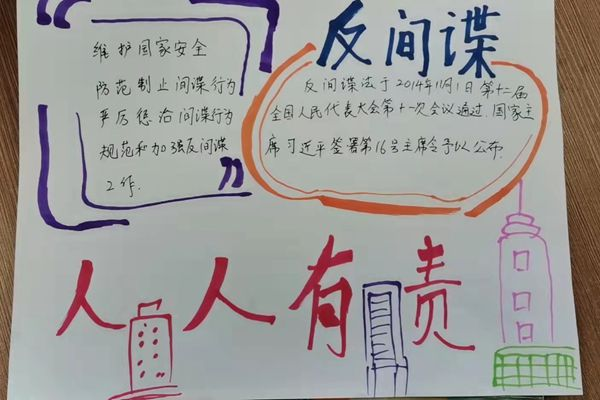 维护国家安全
防范制止间谍行为
严厉惩治间谍行为
规范和加强反间谍
工作.
反间谍
反间谍法于2014年11月1日第十二届
全国人民代表大会第十一次会议通过.国家主
席习近平签署第16号主席令予以公布.
人人有责